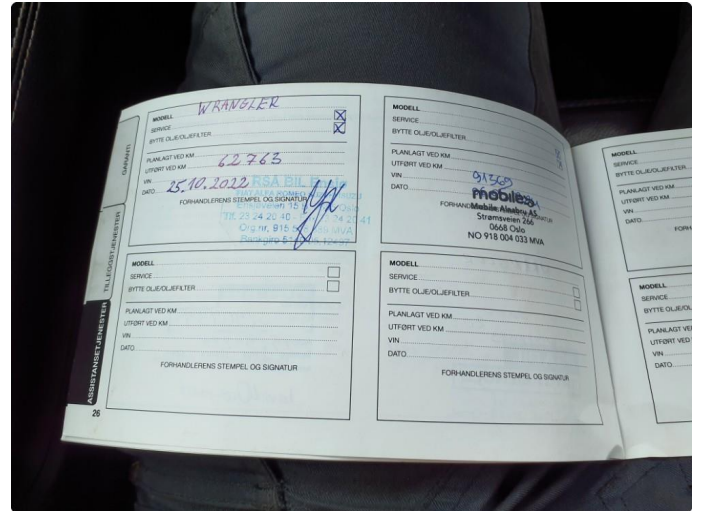 GARANTI
TILLEGGSTJENESTER
ASSISTANSETJENESTER
MODELL WRANGLER
SERVICE X
BYTTE OLJE/OLJEFILTER X
PLANLAGT VED KM
UTFØRT VED KM 62763
VIN
DATO 25.10.2022
RSA BIL
FORHANDLERENS STEMPEL OG SIGNATUR
Tlf. 23 24 20 40
Org.nr. 915
Bankgiro
MODELL
SERVICE
BYTTE OLJE/OLJEFILTER
PLANLAGT VED KM
UTFØRT VED KM
VIN
DATO
FORHANDLERENS STEMPEL OG SIGNATUR
26
MODELL
SERVICE
BYTTE OLJE/OLJEFILTER
PLANLAGT VED KM
UTFØRT VED KM 91369
VIN
DATO
mobile
Mobile Alnabru AS
Strømsveien 266
0668 Oslo
NO 918 004 033 MVA
MODELL
SERVICE
BYTTE OLJE/OLJEFILTER
PLANLAGT VED KM
UTFØRT VED KM
VIN
DATO
FORHANDLERENS STEMPEL OG SIGNATUR
MODELL
SERVICE
BYTTE OLJE/OL
PLANLAGT VED KM
UTFØRT VED KM
VIN
DATO
FORH
MODELL
SERVICE
BYTTE OLJE/OL
PLANLAGT VE
UTFØRT VED
VIN
DATO